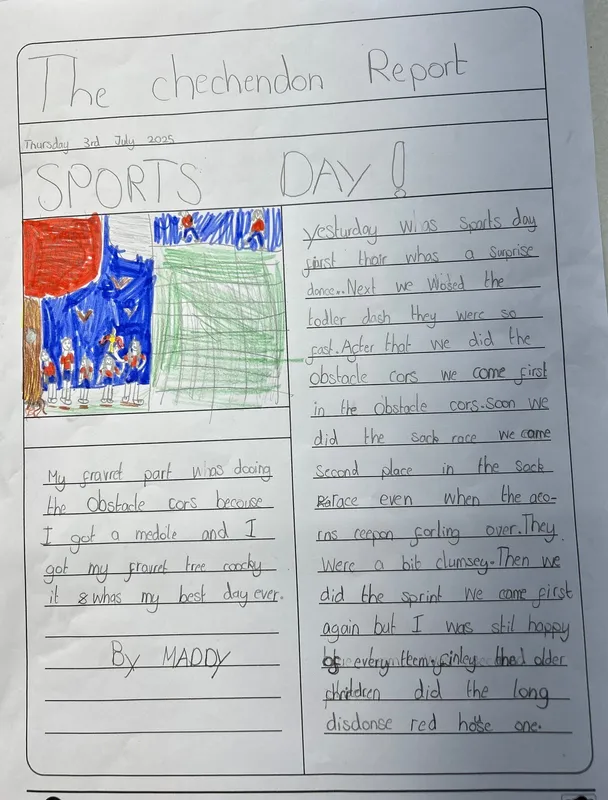 The chechendon Report
Thursday 3rd July 2025
SPORTS DAY!
My fravret part whas dooing
the Obstacle cors becouse
I got a medole and I
got my fravret tree coocky
it &whas my best day ever.
By MADDY
yesturday was sports day
first thair whas a surprise
dance.. Next we woted the
todler dash they were so
fast. Acter that we did the
obstacle cors we come first
in the obstacle cors. Soon we
did the sack race we came
Second place in the sack
race even when the aco-
rns ceepon forling over. They
Were a bit clumsey. Then we
did the sprint we came first
again but I was stil happy
of every them. finley the older
children did the long
disdonse red hose one.